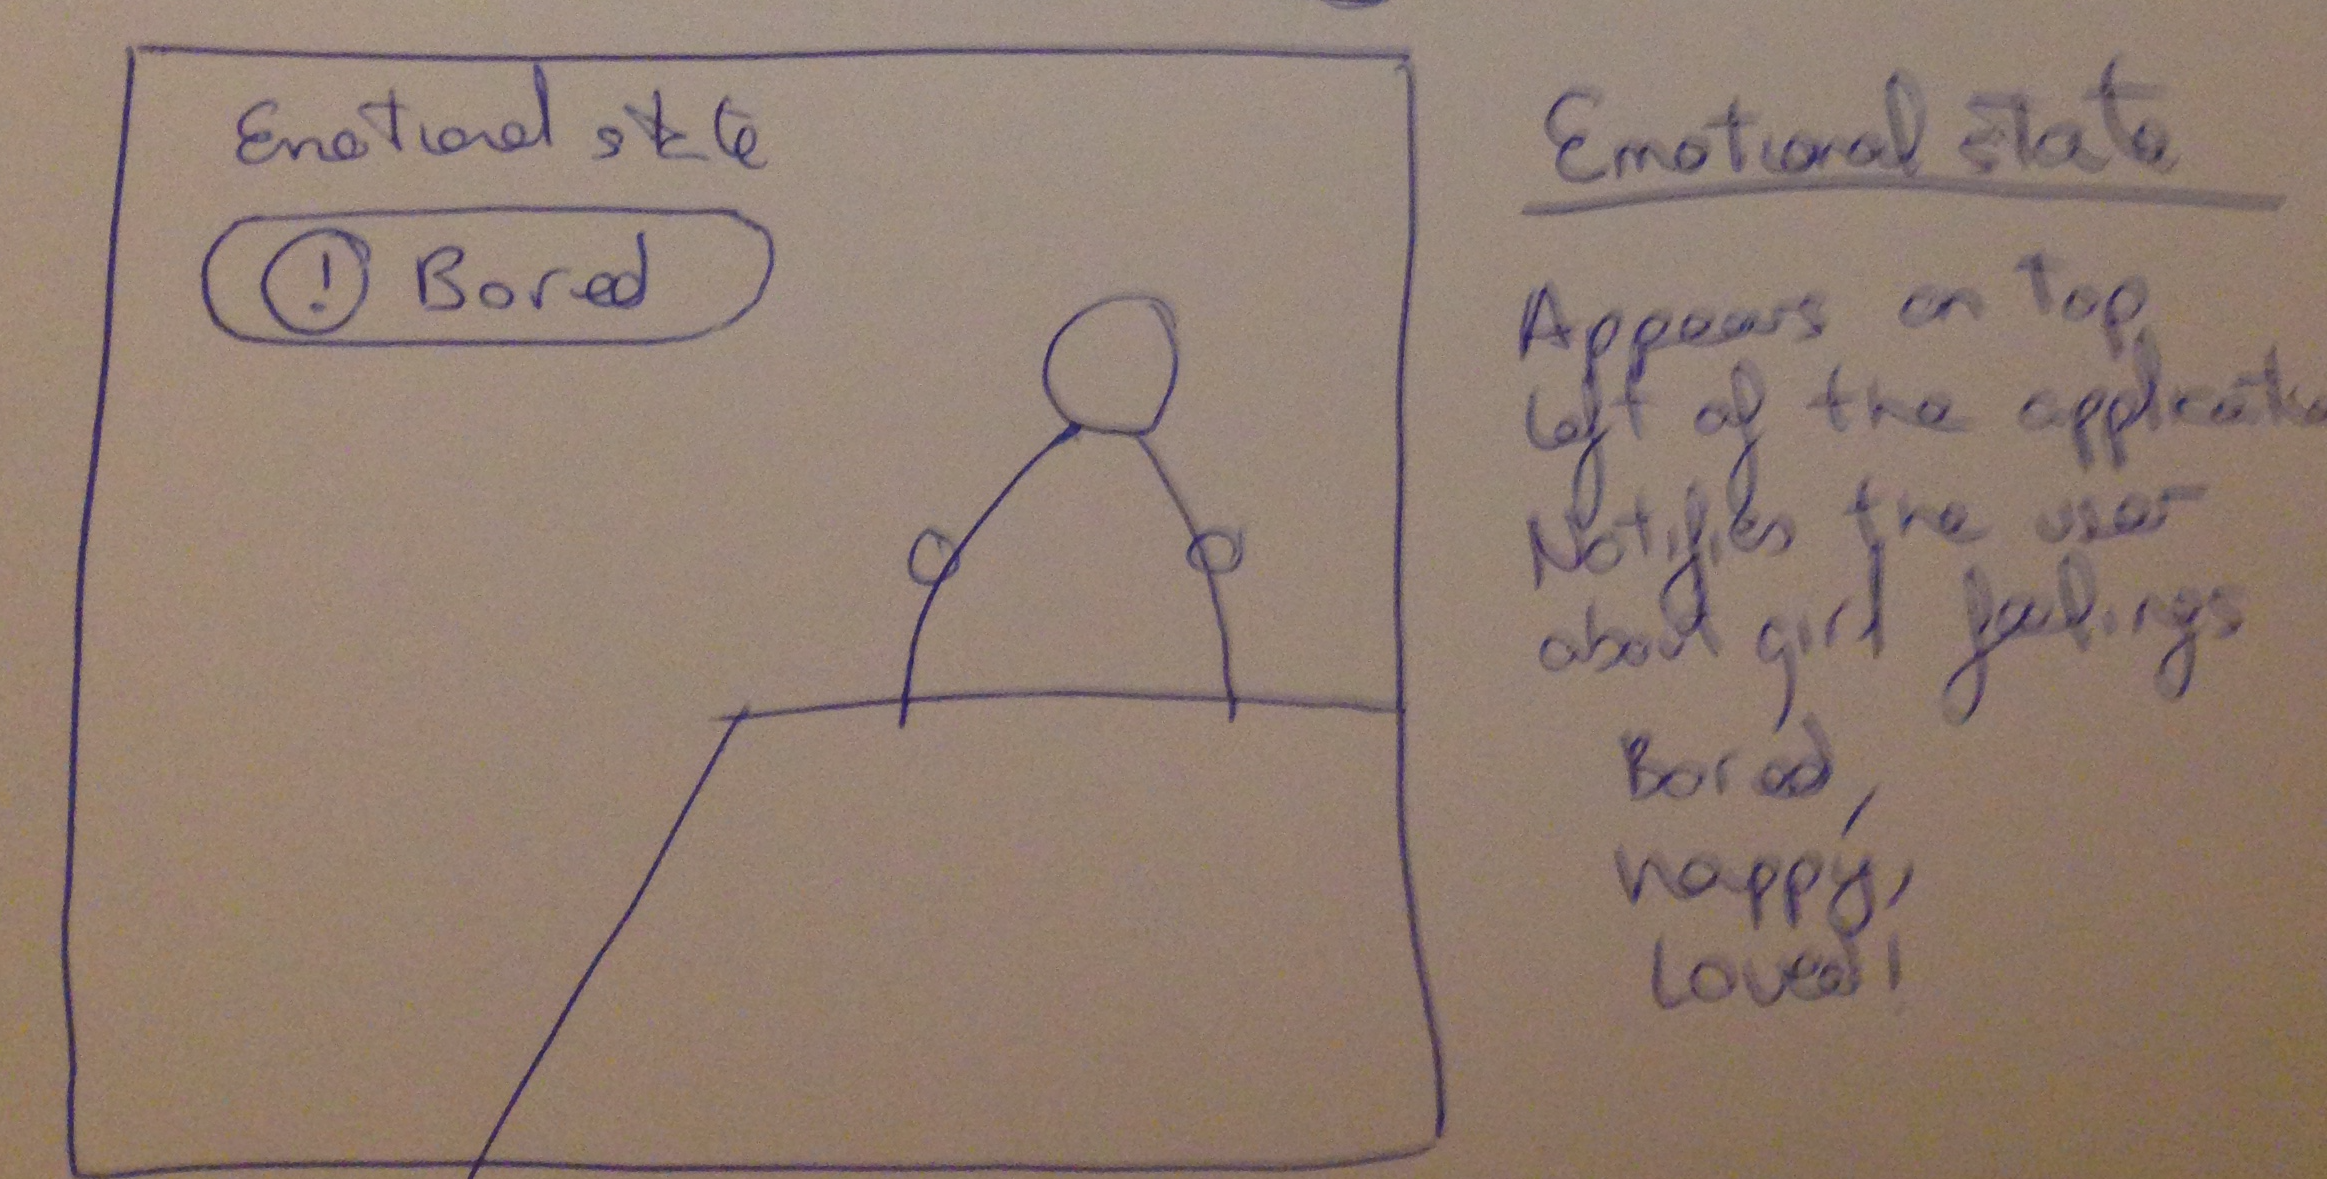 Emotional state
! Bored
Emotional state
Appears on top
left of the applicatio
Notifies the user
about girl feelings
Bored,
happy,
Loved!